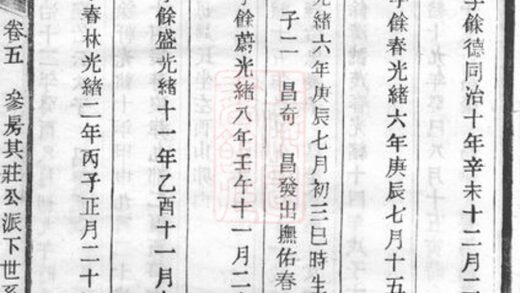 餘德同治十年辛未十二月二
餘春光緒六年庚辰七月十五
光緒六年庚辰七月初三巳時生
子二 昌奇 昌發出撫佑春
餘蔚光緒八年壬午十一月二
餘盛光緒十一年乙酉十一月
春林光緒二年丙子正月二十
卷五 參房其莊公派下世系